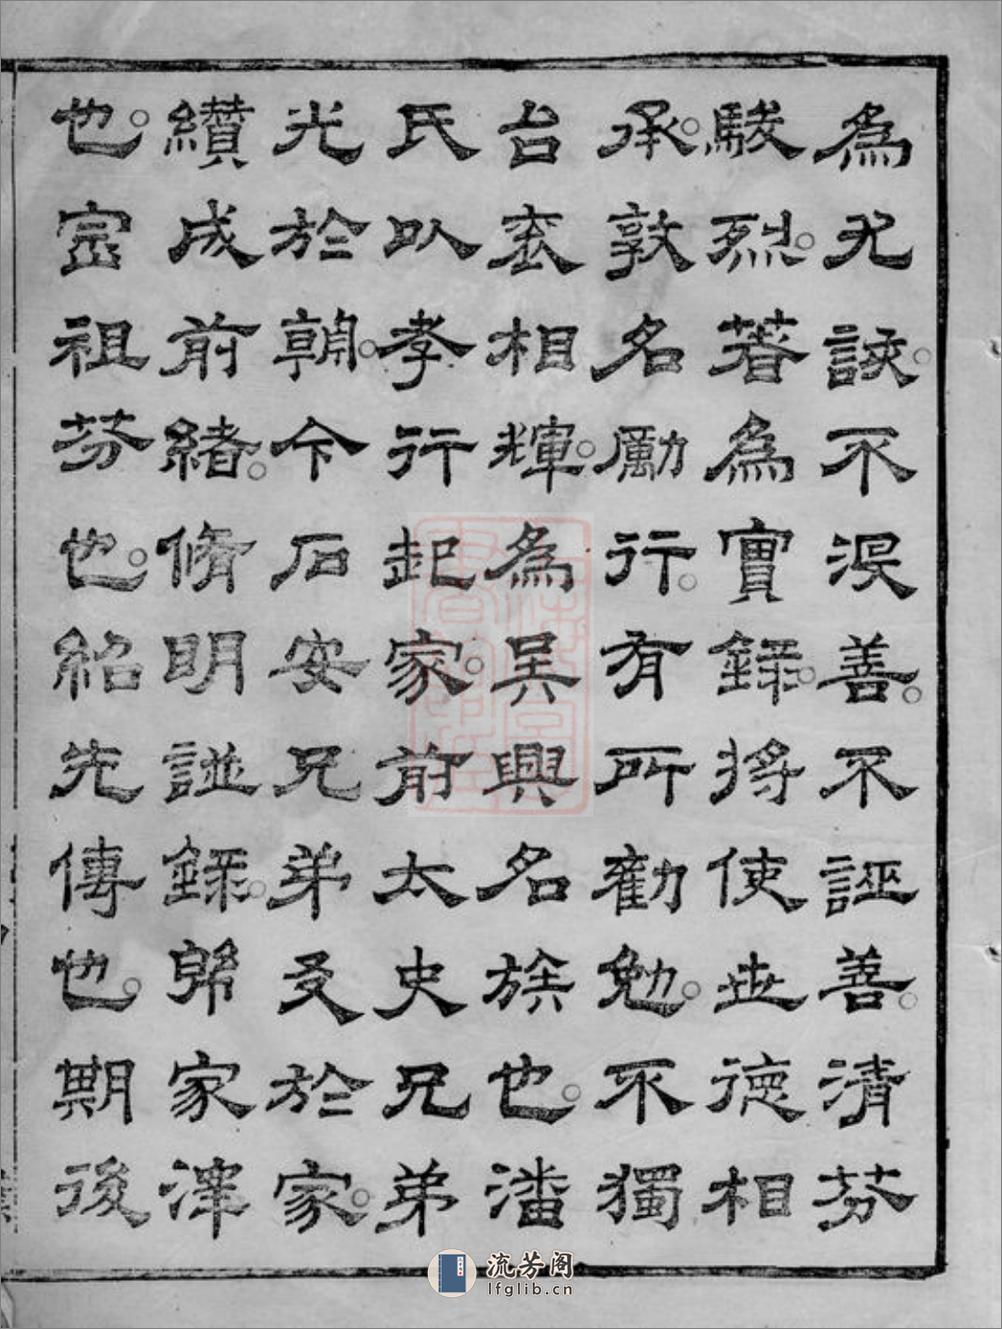 為尤諛不没善不誣善清芬
駿烈著為實錄將使世德相
承敦名勵行有所勸勉不獨
台衮相輝為吳興名族也潘
氏以孝行起家前太史兄弟
光於朝今石安兄弟友於家
纘成前緒脩明譜錄歸家澤
也宣祖芬也紹先傳也期後
流芳阁
lfglib.cn